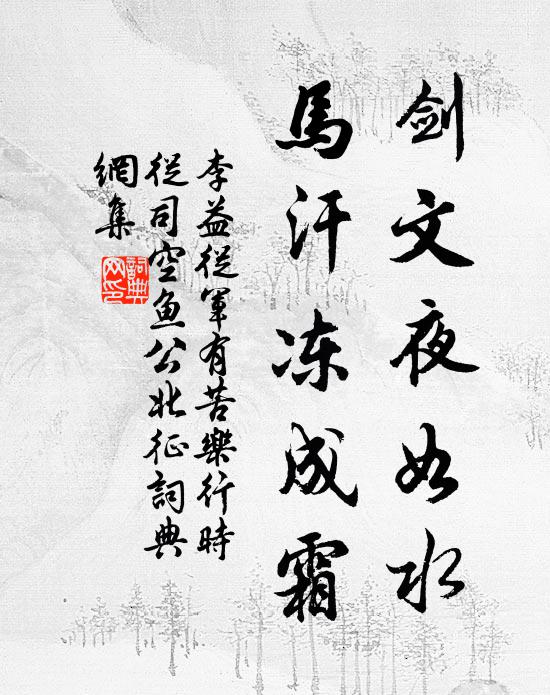 剑文夜如水
馬汗冻成霜
李益從軍有苦樂行時
從司空魚公北征詞典
網集
詞典網印